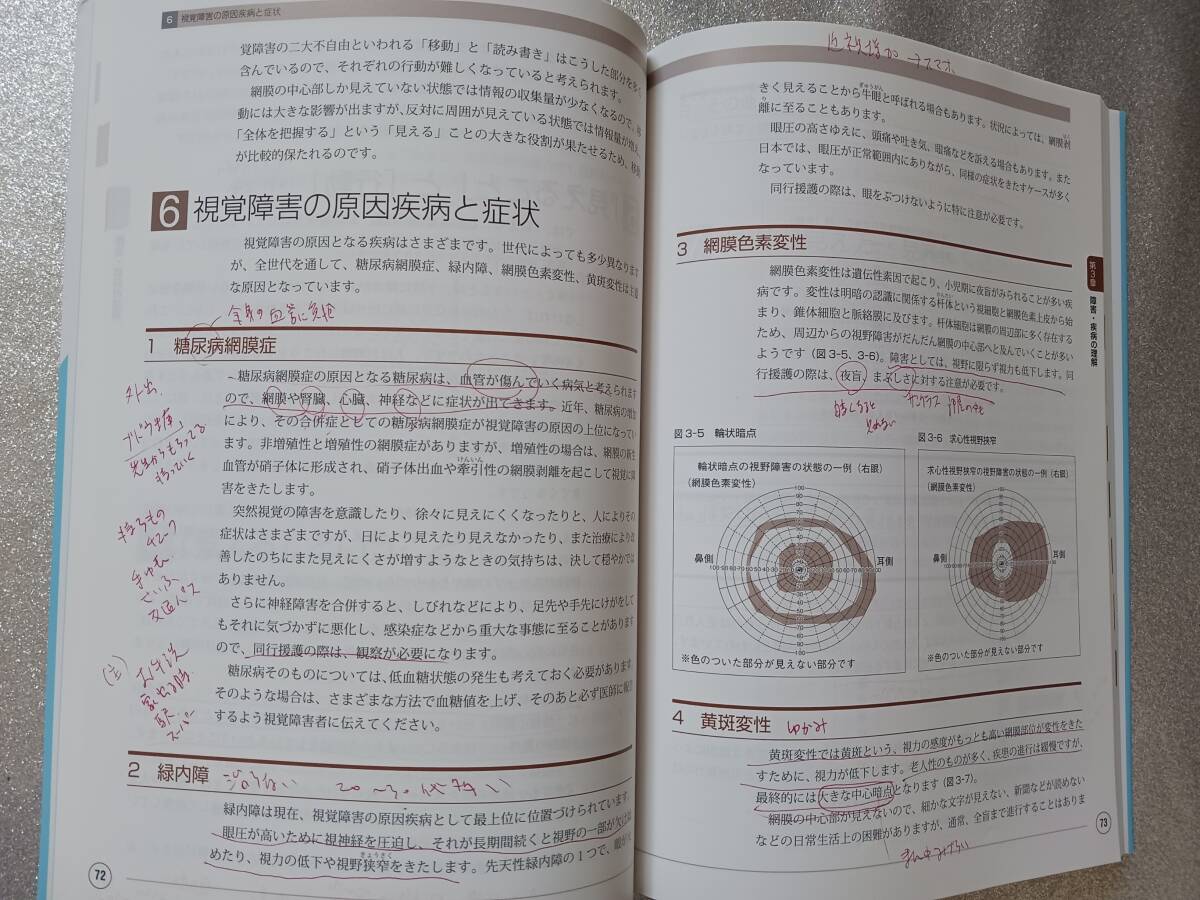 6 視覚障害の原因疾病と症状
覚障害の二大不自由といわれる「移動」と「読み書き」はこうした部分を多く
含んでいるので、それぞれの行動が難しくなっていると考えられます。
網膜の中心部しか見えていない状態では情報の収集量が少なくなるので、移
動には大きな影響が出ますが、反対に周囲が見えている状態では情報量が増え、
「全体を把握する」という「見える」ことの大きな役割が果たせるため、移動
が比較的保たれるのです。
6 視覚障害の原因疾病と症状
視覚障害の原因となる疾病はさまざまです。世代によっても多少異なります
が、全世代を通して、糖尿病網膜症、緑内障、網膜色素変性、黄斑変性は主要
な原因となっています。
全身の血管に
1 糖尿病網膜症
糖尿病網膜症の原因となる糖尿病は、血管が傷んでいく病気と考えられます
ので、網膜や腎臓、心臓、神経などに症状が出てきます。近年、糖尿病の増加
により、その合併症としての糖尿病網膜症が視覚障害の原因の上位になってい
ます。非増殖性と増殖性の網膜症がありますが、増殖性の場合は、網膜の新生
血管が硝子体に形成され、硝子体出血や牽引性の網膜剥離を起こして視覚に障
けんいん
害をきたします。
突然視覚の障害を意識したり、徐々に見えにくくなったりと、人によりその
症状はさまざまですが、日により見えたり見えなかったり、また治療により改
善したのちにまた見えにくさが増すようなときの気持ちは、決して穏やかでは
ありません。
さらに神経障害を合併すると、しびれなどにより、足先や手先にけがをして
もそれに気づかずに悪化し、感染症などから重大な事態に至ることがあります
ので、同行援護の際は、観察が必要になります。
糖尿病そのものについては、低血糖状態の発生も考えておく必要があります。
そのような場合は、さまざまな方法で血糖値を上げ、そのあと必ず医師に報告
するよう視覚障害者に伝えてください。
外出
ブドウ糖
先生からもらってる
持っていく
持ちもの
チェック
さいふ
交通パス
駅
スーパー
2 緑内障
治らない 20〜30代 多い
緑内障は現在、視覚障害の原因疾病として最上位に位置づけられています。
眼圧が高いために視神経を圧迫し、それが長期間続くと視野の一部が欠けは
じめたり、視力の低下や視野狭窄をきたします。先天性緑内障の1つで、眼が大
きょうさく
72
近視増加 スマホ
きく見えることから牛眼と呼ばれる場合もあります。状況によっては、網膜剥
ぎゅうがん
離に至ることもあります。
眼圧の高さゆえに、頭痛や吐き気、眼痛などを訴える場合もあります。また
日本では、眼圧が正常範囲内にありながら、同様の症状をきたすケースが多く
なっています。
同行援護の際は、眼をぶつけないように特に注意が必要です。
3 網膜色素変性
網膜色素変性は遺伝性素因で起こり、小児期に夜盲がみられることが多い疾
病です。変性は明暗の認識に関係する杆体という視細胞と網膜色素上皮から始
かんたい
まり、錐体細胞と脈絡膜に及びます。杆体細胞は網膜の周辺部に多く存在する
ため、周辺からの視野障害がだんだん網膜の中心部へと及んでいくことが多い
ようです（図3-5、3-6）。障害としては、視野に限らず視力も低下します。同
行援護の際は、夜盲、まぶしさに対する注意が必要です。
暗くなると
見えない
サングラス
図3-5 輪状暗点
輪状暗点の視野障害の状態の一例（右眼）
（網膜色素変性）
鼻側
耳側
※色のついた部分が見えない部分です
図3-6 求心性視野狭窄
求心性視野狭窄の視野障害の状態の一例（右眼）
（網膜色素変性）
鼻側
耳側
※色のついた部分が見えない部分です
4 黄斑変性 ゆがみ
黄斑変性では黄斑という、視力の感度がもっとも高い網膜部位が変性をきた
すために、視力が低下します。老人性のものが多く、疾患の進行は緩慢ですが、
最終的には大きな中心暗点となります（図3-7）。
網膜の中心部が見えないので、細かな文字が見えない、新聞などが読めない
などの日常生活上の困難がありますが、通常、全盲まで進行することはありま
第3章
障害・疾病の理解
73